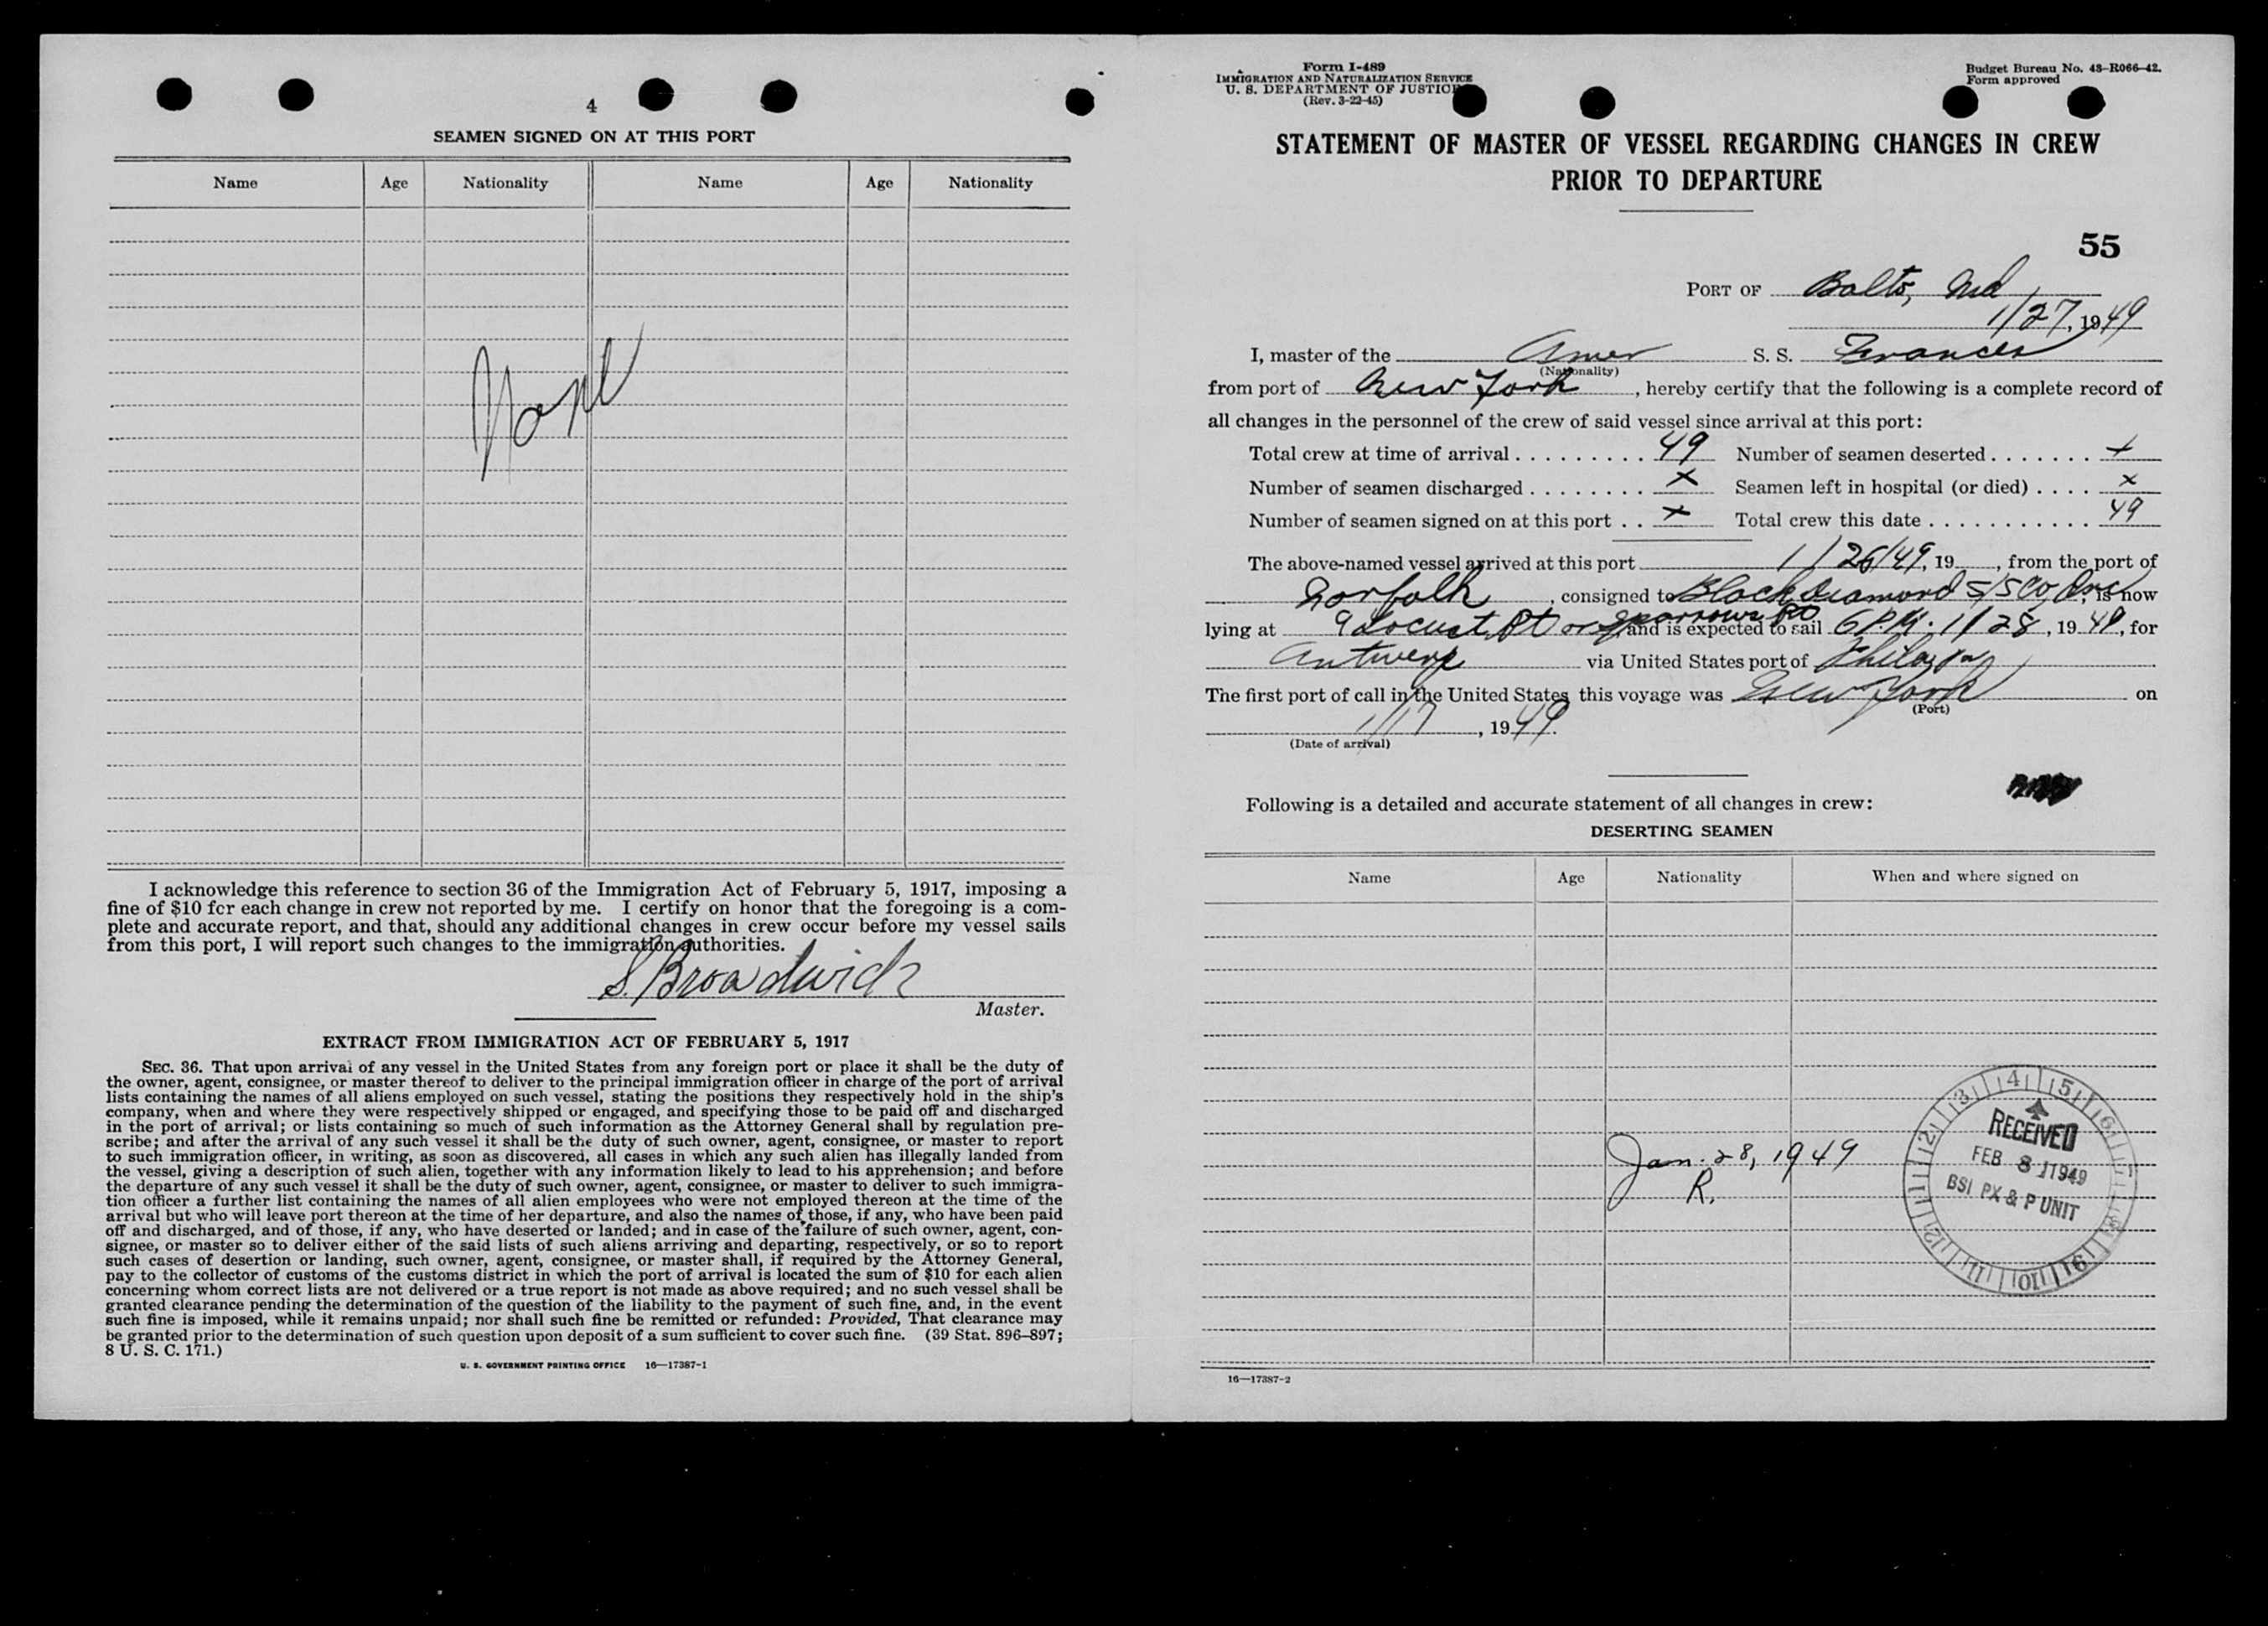 4
SEAMEN SIGNED ON AT THIS PORT
Name Age Nationality Name Age Nationality
None
I acknowledge this reference to section 36 of the Immigration Act of February 5, 1917, imposing a
fine of $10 for each change in crew not reported by me. I certify on honor that the foregoing is a com-
plete and accurate report, and that, should any additional changes in crew occur before my vessel sails
from this port, I will report such changes to the immigration authorities.
S. Broadwick
Master.
EXTRACT FROM IMMIGRATION ACT OF FEBRUARY 5, 1917
SEC. 36. That upon arrival of any vessel in the United States from any foreign port or place it shall be the duty of
the owner, agent, consignee, or master thereof to deliver to the principal immigration officer in charge of the port of arrival
lists containing the names of all aliens employed on such vessel, stating the positions they respectively hold in the ship's
company, when and where they were respectively shipped or engaged, and specifying those to be paid off and discharged
in the port of arrival; or lists containing so much of such information as the Attorney General shall by regulation pre-
scribe; and after the arrival of any such vessel it shall be the duty of such owner, agent, consignee, or master to report
to such immigration officer, in writing, as soon as discovered, all cases in which any such alien has illegally landed from
the vessel, giving a description of such alien, together with any information likely to lead to his apprehension; and before
the departure of any such vessel it shall be the duty of such owner, agent, consignee, or master to deliver to such immigra-
tion officer a further list containing the names of all alien employees who were not employed thereon at the time of the
arrival but who will leave port thereon at the time of her departure, and also the names of those, if any, who have been paid
off and discharged, and of those, if any, who have deserted or landed; and in case of the failure of such owner, agent, con-
signee, or master so to deliver either of the said lists of such aliens arriving and departing, respectively, or so to report
such cases of desertion or landing, such owner, agent, consignee, or master shall, if required by the Attorney General,
pay to the collector of customs of the customs district in which the port of arrival is located the sum of $10 for each alien
concerning whom correct lists are not delivered or a true report is not made as above required; and no such vessel shall be
granted clearance pending the determination of the question of the liability to the payment of such fine, and, in the event
such fine is imposed, while it remains unpaid; nor shall such fine be remitted or refunded: Provided, That clearance may
be granted prior to the determination of such question upon deposit of a sum sufficient to cover such fine. (39 Stat. 896–897;
8 U. S. C. 171.)
U. S. GOVERNMENT PRINTING OFFICE 16—17387-1
Form I-489
IMMIGRATION AND NATURALIZATION SERVICE
U. S. DEPARTMENT OF JUSTICE
(Rev. 3-22-45)
Budget Bureau No. 43-R066-42.
Form approved
STATEMENT OF MASTER OF VESSEL REGARDING CHANGES IN CREW
PRIOR TO DEPARTURE
55
PORT OF Balto, Md
1/27, 1949
I, master of the Amer S. S. Frances
(Nationality)
from port of New York, hereby certify that the following is a complete record of
all changes in the personnel of the crew of said vessel since arrival at this port:
Total crew at time of arrival 49 Number of seamen deserted x
Number of seamen discharged x Seamen left in hospital (or died) x
Number of seamen signed on at this port x Total crew this date 49
The above-named vessel arrived at this port 1/26/49, 19, from the port of
Norfolk, consigned to Black Diamond S/S Co, Inc, is now
lying at 9 Locust Pt or Sparrows Pt and is expected to sail 6 P.M. 1/28, 1949, for
Antwerp via United States port of Phila, Pa
The first port of call in the United States this voyage was New York on
(Port)
1/17, 1949.
(Date of arrival)
Following is a detailed and accurate statement of all changes in crew:
DESERTING SEAMEN
Name Age Nationality When and where signed on
Jan. 28, 1949
R.
1 2 3 4 5 6 7 8 9 10 11 12
RECEIVED
FEB 8 1949
BSI PX & P UNIT
16—17387-2